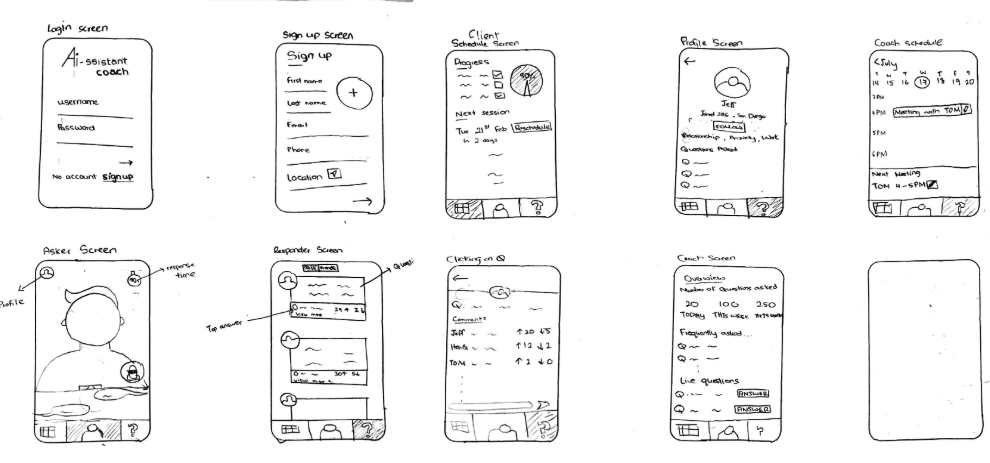 Login screen
Ai-ssistant
coach
username
Password
No account signup
Sign up screen
Sign up
First name
Last name
Email
Phone
Location
Client
Schedule Screen
Progress
Next session
Tue 21st Feb Reschedule
in 2 days
?
Profile Screen
Jeff
San Diego
Relationship, Anxiety, Work
Questions Asked
Q
Q
Q
?
Coach schedule
<July
S M T W T F S
14 15 16 17 18 19 20
3PM
4PM Meeting with TOM
5PM
6PM
Next Meeting
TOM 4-5PM
?
Asker Screen
response
time
Profile
?
Responder Screen
Top answer
29↑ 2↓
view more
30↑ 5↓
view more
?
Clicking on Q
Q.
Comments
Jeff ↑20 ↓5
↑12 ↓2
TOM ↑2 ↓0
?
Coach Screen
Overview
Number of Questions asked
20 100 250
TODAY THIS WEEK THIS MONTH
Frequently asked...
Q
Q
Live questions
Q. ANSWER
Q ANSWER
?